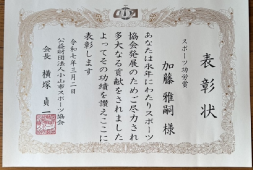 表彰状
スポーツ功労賞
加藤雅嗣 様
あなたは永年にわたりスポーツ
協会発展のためご尽力され
多大なる貢献をされました
よってその功績を讃えここに
表彰します
令和七年三月二日
公益財団法人小山市スポーツ協会
会長 横塚 貞一